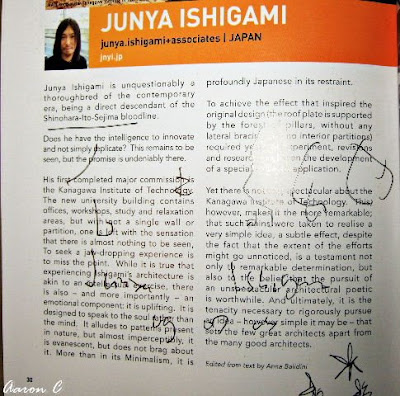 JUNYA ISHIGAMI
junya.ishigami+associates | JAPAN
jnyi.jp
Junya Ishigami is unquestionably a
thoroughbred of the contemporary
era, being a direct descendant of the
Shinohara-Ito-Sejima bloodline.
Does he have the intelligence to innovate
and not simply replicate? This remains to be
seen, but the promise is undeniably there.
His first completed major commission is
the Kanagawa Institute of Technology.
The new university building contains
offices, workshops, study and relaxation
areas, but with not a single wall or
partition, one is left with the sensation
that there is almost nothing to be seen,
To seek a jaw-dropping experience is
to miss the point. While it is true that
experiencing Ishigami's architecture is
akin to an exercise, there
is also – and more importantly – an
emotional component: it is uplifting. It is
designed to speak to the soul rather than
the mind. It alludes to patterns present
in nature, but almost imperceptibly, it
is evanescent, but does not brag about
it. More than in its Minimalism, it is
profoundly Japanese in its restraint.
To achieve the effect that inspired the
original design (the roof plate is supported
by the forest of pillars, without any
lateral bracing and no interior partitings)
required years of experiment, revisions
and research, in the development
of a special application.
Yet there is nothing spectacular about the
Kanagawa Institute of Technology. This,
however, makes it the more remarkable;
that such pains were taken to realise a
very simple idea, a subtle effect, despite
the fact that the extent of the efforts
might go unnoticed, is a testament not
only to remarkable determination, but
also to the belief that the pursuit of
an architectural poetic
is worthwhile. And ultimately, it is the
tenacity necessary to rigorously pursue
an idea – however simple it may be – that
sets the few great architects apart from
the many good architects.
Edited from text by Anna Baldini
30
Aaron C